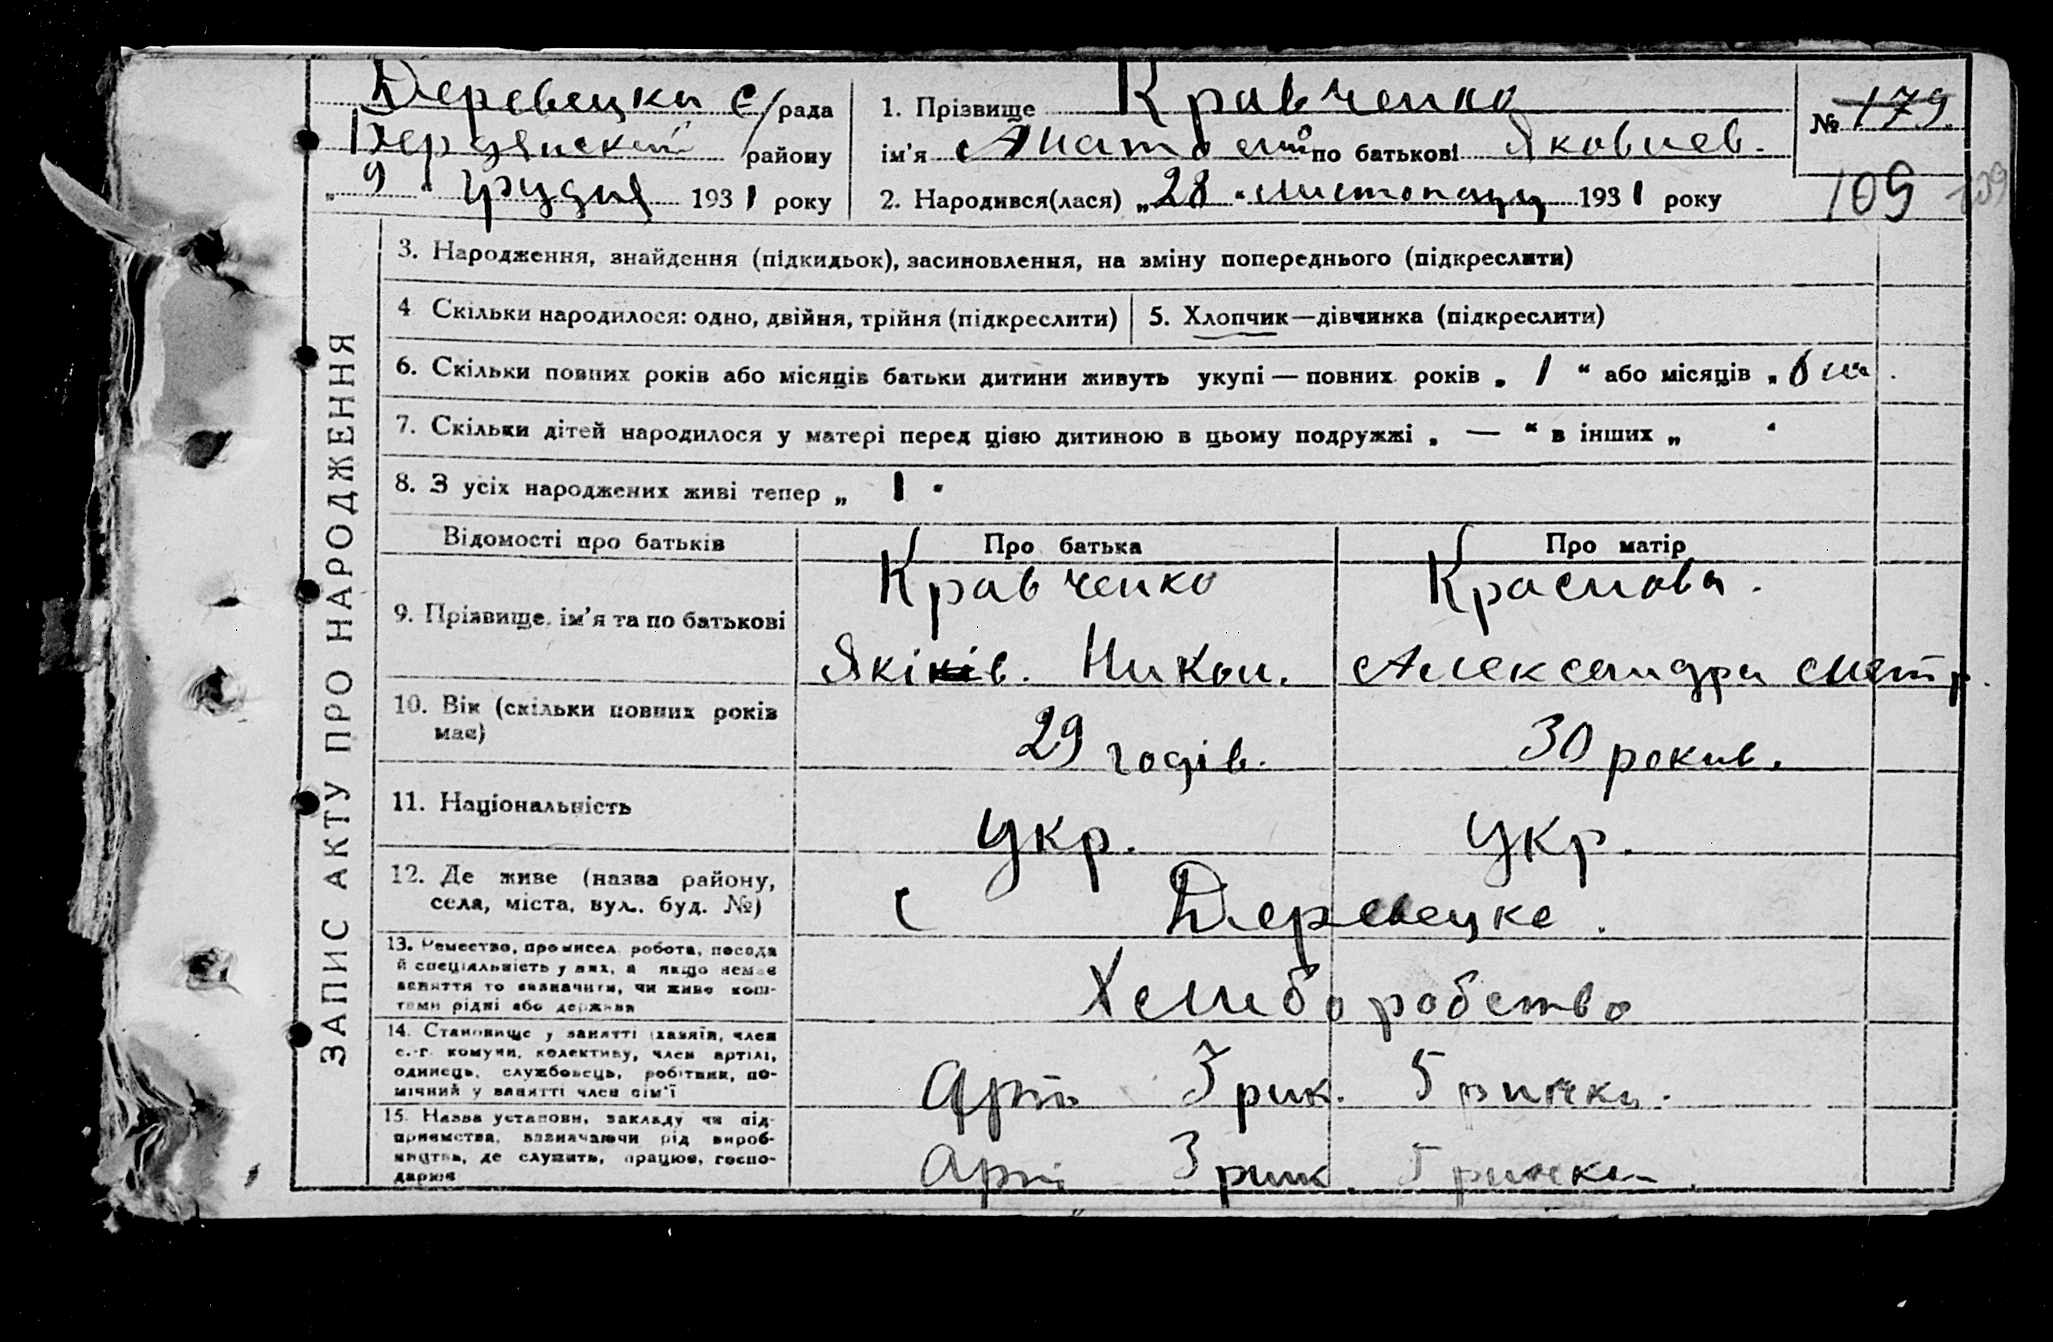 Деревецка с/рада
Бердянский району
„ 9 " грудня 1931 року
1. Прізвище Кравченко
ім'я Анатолий по батькові Яковлев.
2. Народився(лася) „ 28 " листопада 1931 року
№ 179.
109 109
ЗАПИС АКТУ ПРО НАРОДЖЕННЯ
3. Народження, знайдення (підкидьок), засиновлення, на зміну попереднього (підкреслити)
4 Скільки народилося: одно, двійня, трійня (підкреслити)
5. Хлопчик—дівчинка (підкреслити)
6. Скільки повних років або місяців батьки дитини живуть укупі — повних років „ 1 " або місяців „ 6 м
7. Скільки дітей народилося у матері перед цією дитиною в цьому подружжі „ — " в інших „ "
8. З усіх народжених живі тепер „ 1 "
Відомості про батьків
Про батька
Про матір
9. Прізвище, ім'я та по батькові
Кравченко
Яків. Никол.
Краснова.
Александра
10. Вік (скільки повних років має)
29 годів.
30 рокив.
11. Національність
Укр.
Укр.
12. Де живе (назва району,
села, міста, вул. буд. №)
с Деревецке.
13. Ремество, промисел, робота, посада
й спеціяльність у них, а якщо немає
заняття то визначити, чи живе кош-
тами рідні або держави
Хлиборобство
14. Становище у занятті (хазяїн, член
с.-г. комуни, колективу, член артілі,
одинець, службовець, робітник, по-
мічний у занятті член сім'ї
Арт 3 рик. 5 рички.
15. Назва установи, закладу чи під-
приємства, визначаючи рід вироб-
ництва, де служить, працює, госпо-
дарює
Арт 3 рик. 5 рички.